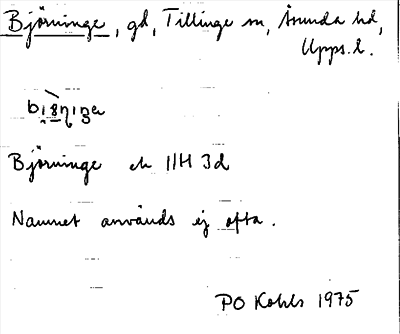 Björninge, gd, Tillinge sn, Åsunda hd,
Upps. l.
Björninge ek 11H 3d
Namnet används ej ofta.
PO Kohls 1975